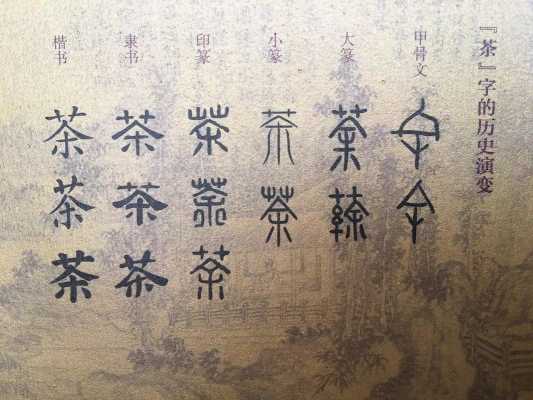 『茶』字的历史演变
甲骨文
大篆
小篆
茶
茶
印篆
茶
茶
茶
隶书
茶
茶
茶
楷书
茶
茶
茶